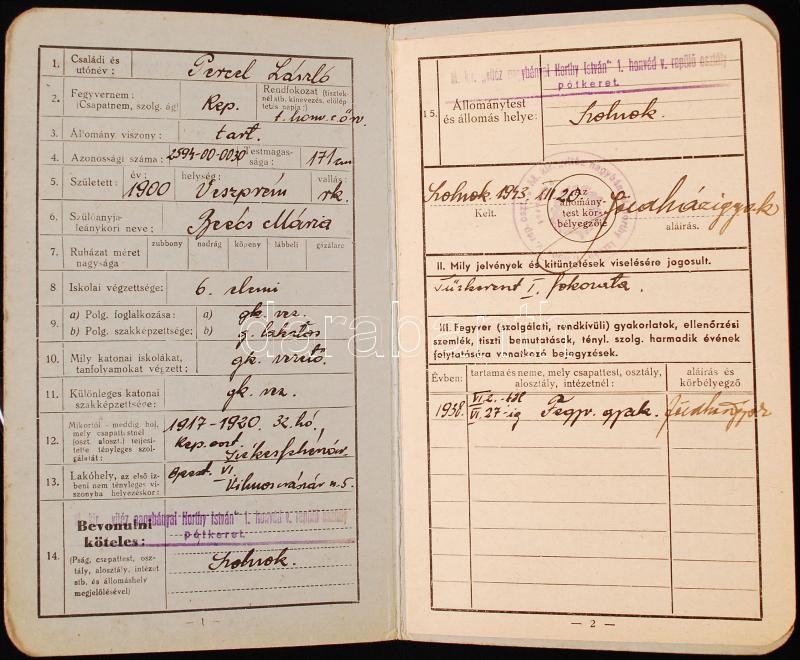 1. Családi és utónév: Percel László
2. Fegyvernem: (Csapatnem, szolg. ág) Rep. Rendfokozat (tisztek-
nél stb. kinevezés, előlép-
tetés napja:) t. honv. c. őrv.
3. Állomány viszony: tart.
4. Azonossági száma: 2594-00-0030 Testmagas-
sága: 171 cm
5. Született: év: 1900 helység: Veszprém vallás: rk.
6. Szülőanyja
leánykori neve: Beécs Mária
7. Ruházat méret
nagysága zubbony nadrág köpeny lábbeli gázálarc
8 Iskolai végzettsége: 6. elemi
9. a) Polg. foglalkozása: a) gk. vez.
b) Polg. szakképzettsége: b) g. lakatos
10. Mily katonai iskolákat,
tanfolyamokat végzett: gk. vezető
11. Különleges katonai
szakképzettsége: gk. vez.
12. Mikortól - meddig, hol,
mely csapattestnél
(oszt. aloszt.) teljesí-
tette tényleges szol-
gálatát: 1917-1920. 32. hó,
Rep. oszt.
Székesfehérvár
13. Lakóhely, az első íz-
beni nem tényleges vi-
szonyba helyezéskor: Bpest. VI.
Vilmos császár u. 5.
14. Bevonulni
köteles:
(Pság, csapattest, osz-
tály, alosztály, intézet
stb. és állomáshely
megjelölésével)
M. kir. „vitéz nagybányai Horthy István" 1. honvéd v. repülő osztály
pótkeret.
Szolnok.
— 1 —
15. Állománytest
és állomás helye:
M. kir. „vitéz nagybányai Horthy István" 1. honvéd v. repülő osztály
pótkeret.
Szolnok.
Szolnok 1943. III. 20.
Kelt.
Az
állomány-
test kör-
bélyegzője
aláírás.
II. Mily jelvények és kitüntetések viselésére jogosult.
Tűzkereszt I. fokozata.
III. Fegyver (szolgálati, rendkívüli) gyakorlatok, ellenőrzési
szemlék, tiszti bemutatások, tényl. szolg. harmadik évének
folytatására vonatkozó bejegyzések.
Évben: tartama és neme, mely csapattest, osztály,
alosztály, intézetnél: aláírás és
körbélyegző
1938. VI. 2.-től
VI. 27-ig Fegyv. gyak.
— 2 —
darabanth